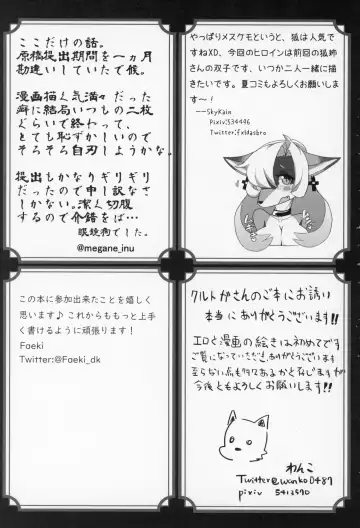 ここだけの話。
原稿提出期間を一ヵ月
勘違いしていたで候。
漫画描く気満々だった
癖に結局いつもの二枚
ぐらいで終わって、
とても恥ずかしいので
そろそろ自刃しようかな。
提出もかなりギリギリ
だったので申し訳なさ
しかない。潔く切腹
するので介錯をば…
眼鏡狗でした。
@megane_inu
やっぱりメスケモというと、狐は人気で
すねXD、今回のヒロインは前回の狐姉
さんの双子です、いつか二人一緒に描
きたいです。夏コミもよろしくお願いしま
す～!
――SkyKain
Pixiv:534446
Twitter:fxldasbro
この本に参加出来たことを嬉しく
思います♪ これからももっと上手
く書けるように頑張ります！
Faeki
Twitter:@Faeki_dk
クルトがさんのご本にお誘い
本当にありがとうございます!!
エロと漫画の絵きは初めてです
ご覧になっていただき、ありがとうございます
至らない点も多々あるかと存じますが
今後ともよろしくお願いします!!
わんこ
Twitter@wanko0487
pixiv 5413970